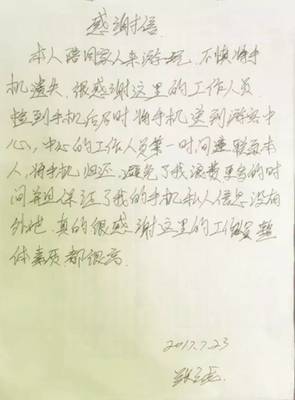 感谢信
本人陪同家人来游玩，不慎将手
机遗失，很感谢这里的工作人员
捡到手机后及时将手机送到游客中
心，中心的工作人员第一时间联系本
人，将手机归还，避免了我浪费更多的时
间并且保证了我的手机私人信息没有
外泄，真的很感谢这里的工作人员整
体素质都很高.
2017.7.23